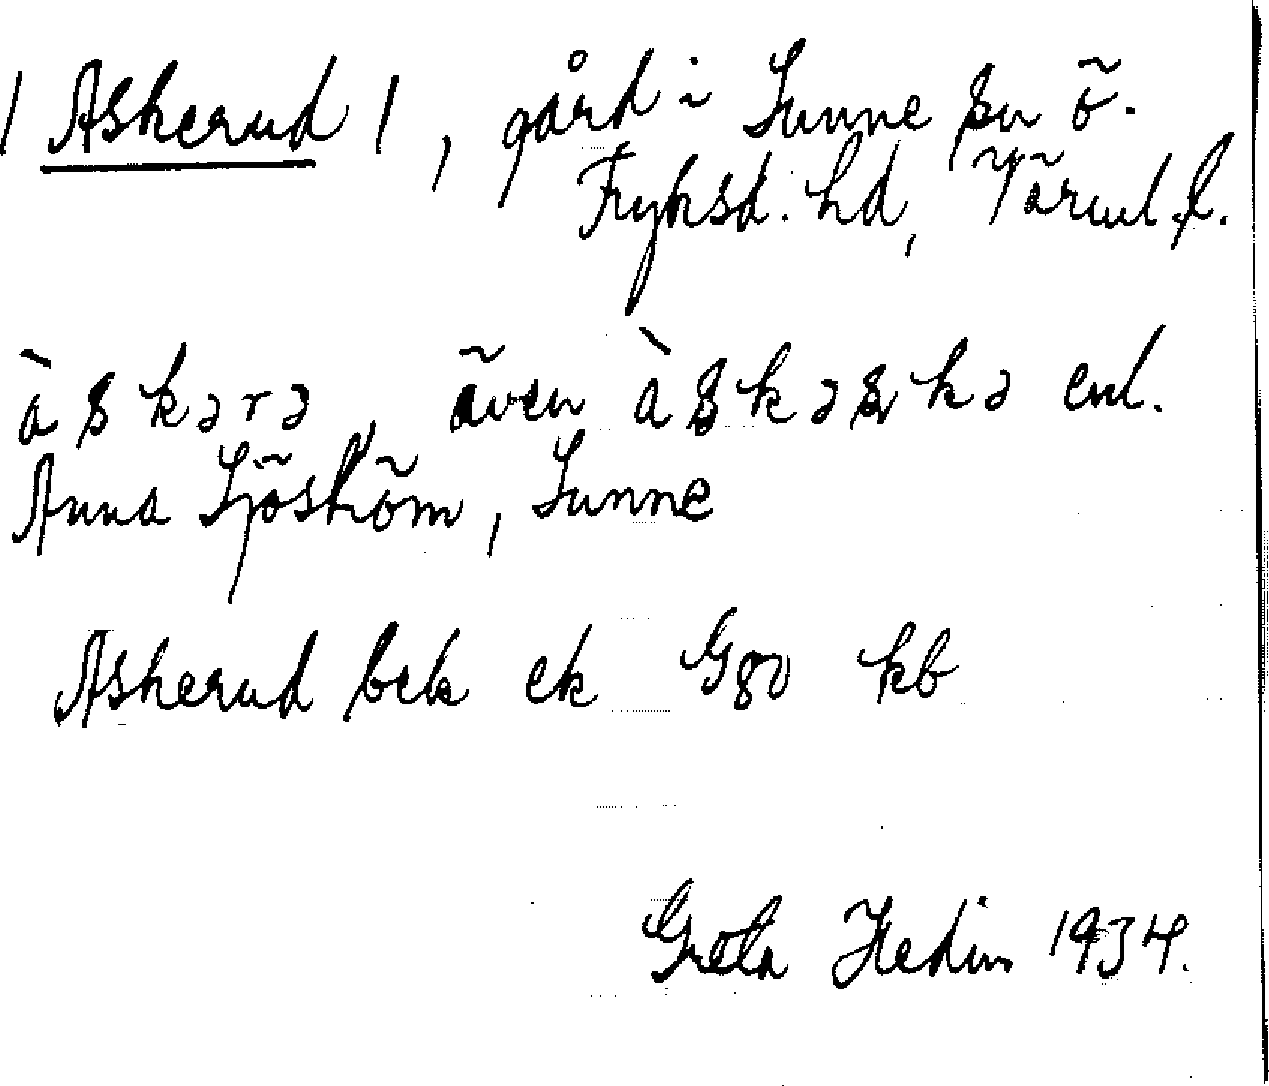 / Askerud /, gård i Sunne sn ö.
Fryksd. hd, Värml. l.
àskərə, även àskəskə enl.
Anna Sjöström, Sunne
Askerud bek ek G80 kb
Greta Hedin 1934.